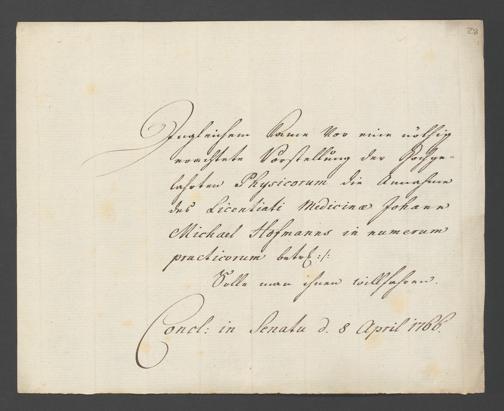 28
Ingleichem Kame vor eine nöthig
erachtete Vorstellung der Hochge-
lahrten Physicorum die Annahme
des Licentiati Medicinæ Johann
Michael Hofmanns in numerum
practicorum betrf:/:
Solle man ihnen willfahren.
Concl: in Senatu d. 8 April 1766.